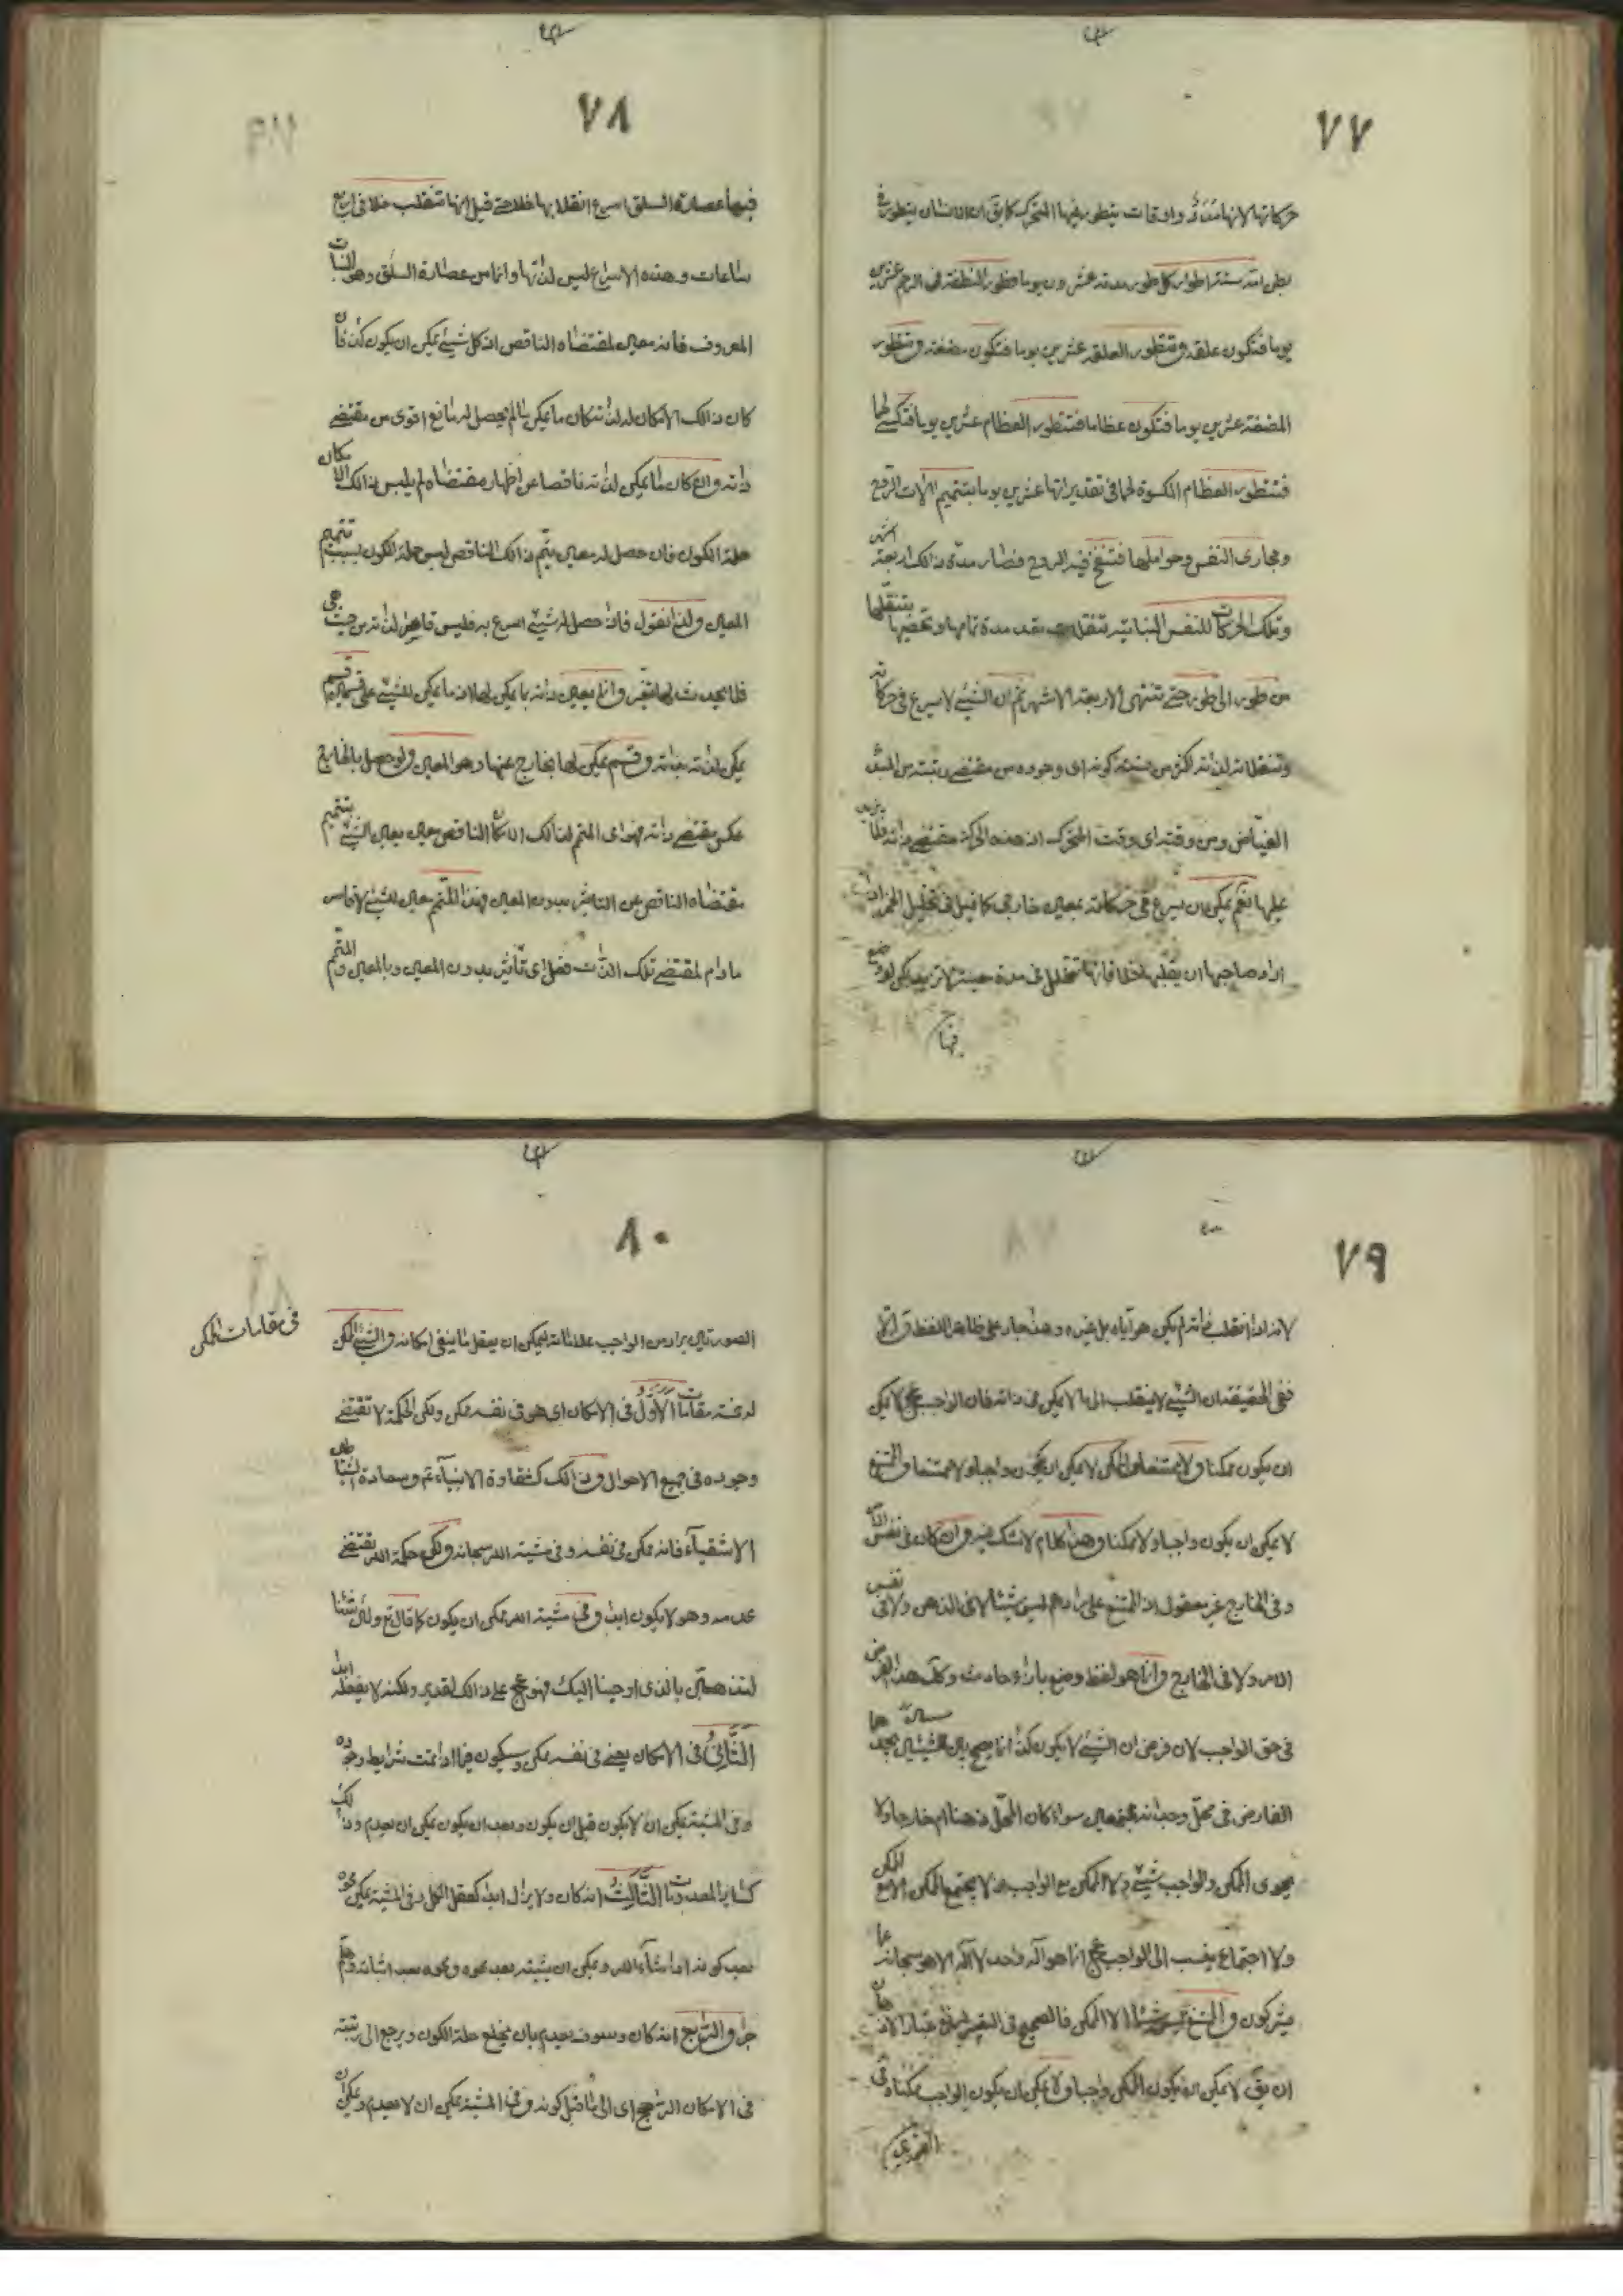 ٧٧
حركاتها لانها مدد واوقات يتطور فيها المتحرك كما يق ان الانسان يتطور في
بطن امه ستة اطوار كل طور مدته عشرون يوما فطور النطفة في الرحم عشرين
يوما فتكون علقة وتتطور العلقة عشرين يوما فتكون مضغة وتتطور
المضغة عشرين يوما فتكون عظاما فتتطور العظام عشرين يوما فتكسى لحما
فتتطور العظام المكسوة لحما في تقديراتها عشرين يوما بتتميم آلات الروح
ومجارى النفس وحواملها فتنفخ فيه الروح فصار مدة ذلك اربعة اشهر
وتلك الحركات للنفس النباتية تنقلات بقدر مدة تمامها وتحضيرها بتنقلها
من طور الى طور حتى تنتهى الاربعة الاشهر ثم ان الشيئ لا يسرع في حركاته
وتنقلاته لذاته اكثر من كونه اى وجوده من مقتضى رتبته من المبدء
الفياض ومن وقته اى وقت المتحرك اذ هذه الحركة مقتضى ذاته فلا يزيد
عليها نعم يمكن ان يسرع في حركاته بمعين خارجى كما قيل في تحليل الخمر اذا
اراد صاحبها ان يقلبها خلا فانها تتحلل في مدة لا تزيد لكن لو وضع
فيها
٧٨
فيها عصارة السلق اسرع انقلابها خلا حتى قيل انها تنقلب خلا في اربع
ساعات وهذه الاسراع ليس لذاتها وانما من عصارة السلق وهو النبات
المعروف فانه معين لمقتضاه الناقص اذ كل شيئ يمكن ان يكون كذا فان
كان ذلك الامكان لذاته كان ما يمكن ما لم يحصل له مانع اقوى من مقتضى
ذاته وان كان ما يمكن لذاته ناقصا عن اظهار مقتضاه لم يلبس ذلك الامكان
حلة الكون فان حصل له معين يتم ذلك الناقص لبس حلة الكون بسبب تتميم
المعين ولذا نقول فاذا حصل للشيئ اسرع به فليس قاصر لذاته من حيث هى
فلا يحدث لها تغير وانما يعين ذاته بما يمكن لها لان ما يمكن للشيئ على قسمين قسم
يمكن لذاته بذاته وقسم يمكن لها بخارج عنها وهو المعين ولو حصل بالخارج
عكس مقتضى ذاته فهو اى المتمم لذلك الامكان الناقص معين يعين الشيئ بتتميم
مقتضاه الناقص عن التاثير بدون المعين فهذا المتمم معين للشيئ لا قاسر
مادام لمقتضى تلك الذات فضل اى تأثير بدون المعين وبالمعين والمتمم
٧٩
لانه اذا انقلب ذاته لم يكن هو اياه بل غيره وهذا جار على ظاهر اللفظ والا
ففي الحقيقة ان الشيئ لا ينقلب الى ما لا يمكن في ذاته فان الواجب عج لا يمكن
ان يكون ممكنا ولا ممتنعا والممكن لا يمكن ان يكون واجبا ولا ممتنعا والممتنع
لا يمكن ان يكون واجبا ولا ممكنا وهذا كلام لا شك فيه وان كان في نفس الامر
وفي الخارج غير معقول اذ الممتنع على مرادهم ليس شيئا لا في الذهن ولا في نفس
الامر ولا في الخارج وانما هو لفظ وضع بازاء حادث وكك هذا الفرض
في حق الواجب لان فرض ان الشيئ لا يكون كذا انما يصح بين الشيئين يجدهما
الفارض في محل وجدانه مجتمعين سواء كان المحل ذهنا ام خارجا ولا
يحوى الممكن والواجب شيئ الا الممكن مع الواجب ولا يجتمع الممكن الا مع الممكن
ولا اجتماع ينسب الى الواجب عج انما هو آله واحد لا آله الا هو سبحانه عما
يشركون والممتنع ليس شيئا الا الممكن فالصحيح في التعبير
ان يق لا يمكن ان يكون الممكن واجبا ولا يمكن ان يكون الواجب ممكنا وفي
الصورتين
٨٠
الصورتين يراد من الواجب لا يمكن ان يعقل ما ينفى امكانه والشيئ الممكن
في مقامات الممكن
له خمسة مقامات الاول في الامكان اى هو في نفسه ممكن ولكن الحكمة لا تقتضى
وجوده في جميع الاحوال وذلك كشقاوة الانبياء ع وسعادة الشياطين
الاشقياء فانه ممكن في نفسه وفي مشية الله سبحانه ولكن حكمة الله تقتضى
عدمه وهو لا يكون ابدا وفي مشية الله يمكن ان يكون كما قال تع ولئن شئنا
لنذهبن بالذى اوحينا اليك فهو عج على ذلك لقدير ولكنه لا يفعله ابدا
الثانى في الامكان يعنى في نفسه ممكن وسيكون فيما اذا تمت شرايط وجوده
وفي المشية يمكن ان لا يكون قبل ان يكون وبعد ان يكون يمكن ان يعدم وذلك
كساير المعدومات الثالث انه كان ولا يزال ابدا كعقل الكل وفي المشية يمكن محوه
بعد كونه اذا شاء الله ويمكن ان يثبته بعد محوه ومحوه بعد اثباته وهلم
جرا والرابع انه كان وسوف يعدم بان يخلع حلة الكون ويرجع الى رتبته
في الامكان الراجح اى الى ما قبل كونه وفي المشية يمكن ان لا يعدم ويمكن ان